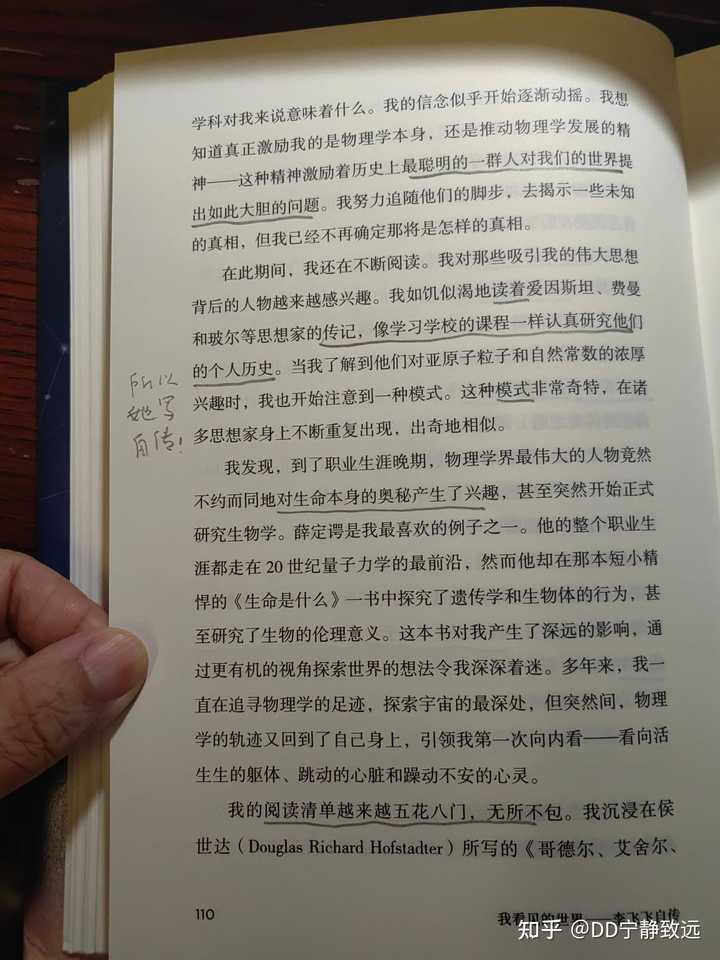 学科对我来说意味着什么。我的信念似乎开始逐渐动摇。我想
知道真正激励我的是物理学本身，还是推动物理学发展的精
神——这种精神激励着历史上最聪明的一群人对我们的世界提
出如此大胆的问题。我努力追随他们的脚步，去揭示一些未知
的真相，但我已经不再确定那将是怎样的真相。
在此期间，我还在不断阅读。我对那些吸引我的伟大思想
背后的人物越来越感兴趣。我如饥似渴地读着爱因斯坦、费曼
和玻尔等思想家的传记，像学习学校的课程一样认真研究他们
的个人历史。当我了解到他们对亚原子粒子和自然常数的浓厚
兴趣时，我也开始注意到一种模式。这种模式非常奇特，在诸
多思想家身上不断重复出现，出奇地相似。
所以
她写
自传！
我发现，到了职业生涯晚期，物理学界最伟大的人物竟然
不约而同地对生命本身的奥秘产生了兴趣，甚至突然开始正式
研究生物学。薛定谔是我最喜欢的例子之一。他的整个职业生
涯都走在 20 世纪量子力学的最前沿，然而他却在那本短小精
悍的《生命是什么》一书中探究了遗传学和生物体的行为，甚
至研究了生物的伦理意义。这本书对我产生了深远的影响，通
过更有机的视角探索世界的想法令我深深着迷。多年来，我一
直在追寻物理学的足迹，探索宇宙的最深处，但突然间，物理
学的轨迹又回到了自己身上，引领我第一次向内看——看向活
生生的躯体、跳动的心脏和躁动不安的心灵。
我的阅读清单越来越五花八门，无所不包。我沉浸在侯
世达（Douglas Richard Hofstadter）所写的《哥德尔、艾舍尔、
110
我看见的世界——李飞飞自传
知乎 @DD宁静致远